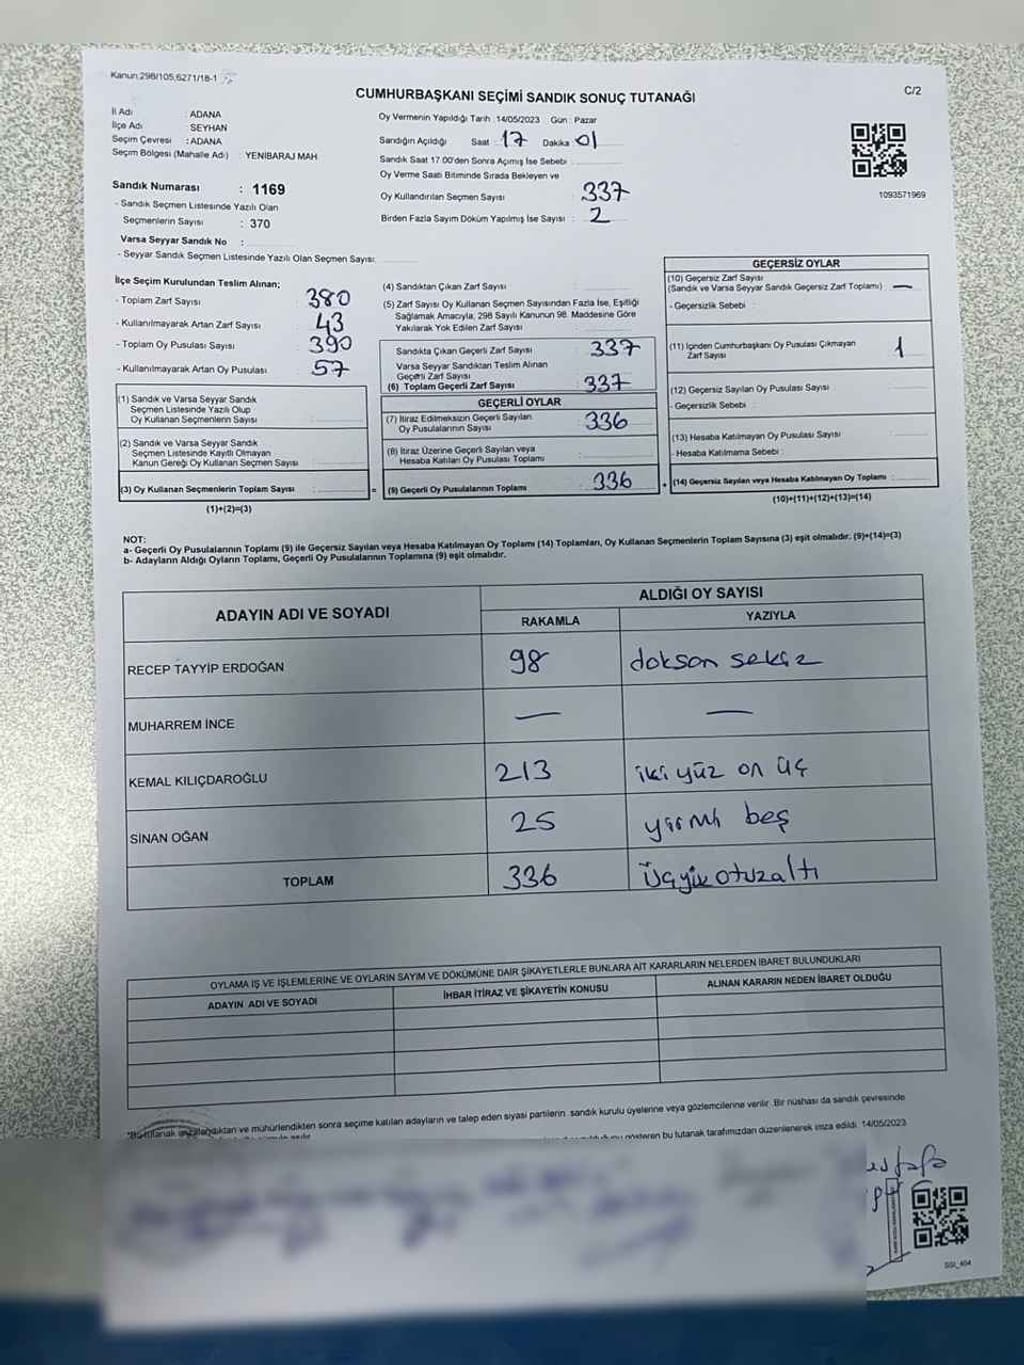 Kanun:298/105,6271/18-1
C/2
CUMHURBAŞKANI SEÇİMİ SANDIK SONUÇ TUTANAĞI
İl Adı : ADANA
İlçe Adı : SEYHAN
Seçim Çevresi : ADANA
Seçim Bölgesi (Mahalle Adı) : YENİBARAJ MAH
Sandık Numarası : 1169
- Sandık Seçmen Listesinde Yazılı Olan
Seçmenlerin Sayısı : 370
Varsa Seyyar Sandık No :
- Seyyar Sandık Seçmen Listesinde Yazılı Olan Seçmen Sayısı:
Oy Vermenin Yapıldığı Tarih : 14/05/2023 Gün : Pazar
Sandığın Açıldığı Saat : 17 Dakika : 01
Sandık Saat 17.00'den Sonra Açımış İse Sebebi :
Oy Verme Saati Bitiminde Sırada Bekleyen ve
Oy Kullandırılan Seçmen Sayısı : 337
Birden Fazla Sayım Döküm Yapılmış İse Sayısı : 2
1093571969
İlçe Seçim Kurulundan Teslim Alınan;
- Toplam Zarf Sayısı : 380
- Kullanılmayarak Artan Zarf Sayısı : 43
- Toplam Oy Pusulası Sayısı : 390
- Kullanılmayarak Artan Oy Pusulası : 57
(1) Sandık ve Varsa Seyyar Sandık
Seçmen Listesinde Yazılı Olup
Oy Kullanan Seçmenlerin Sayısı :
(2) Sandık ve Varsa Seyyar Sandık
Seçmen Listesinde Kayıtlı Olmayan
Kanun Gereği Oy Kullanan Seçmen Sayısı :
(3) Oy Kullanan Seçmenlerin Toplam Sayısı :
(1)+(2)=(3)
(4) Sandıktan Çıkan Zarf Sayısı :
(5) Zarf Sayısı Oy Kullanan Seçmen Sayısından Fazla İse, Eşitliği
Sağlamak Amacıyla, 298 Sayılı Kanunun 98. Maddesine Göre
Yakılarak Yok Edilen Zarf Sayısı :
Sandıkta Çıkan Geçerli Zarf Sayısı : 337
Varsa Seyyar Sandıktan Teslim Alınan
Geçerli Zarf Sayısı :
(6) Toplam Geçerli Zarf Sayısı : 337
GEÇERLİ OYLAR
(7) İtiraz Edilmeksizin Geçerli Sayılan
Oy Pusulalarının Sayısı : 336
(8) İtiraz Üzerine Geçerli Sayılan veya
Hesaba Katılan Oy Pusulası Toplamı :
= (9) Geçerli Oy Pusulalarının Toplamı : 336
GEÇERSİZ OYLAR
(10) Geçersiz Zarf Sayısı
(Sandık ve Varsa Seyyar Sandık Geçersiz Zarf Toplamı) : —
- Geçersizlik Sebebi :
(11) İçinden Cumhurbaşkanı Oy Pusulası Çıkmayan
Zarf Sayısı : 1
(12) Geçersiz Sayılan Oy Pusulası Sayısı :
- Geçersizlik Sebebi :
(13) Hesaba Katılmayan Oy Pusulası Sayısı :
- Hesaba Katılmama Sebebi :
+ (14) Geçersiz Sayılan veya Hesaba Katılmayan Oy Toplamı :
(10)+(11)+(12)+(13)=(14)
NOT:
a- Geçerli Oy Pusulalarının Toplamı (9) ile Geçersiz Sayılan veya Hesaba Katılmayan Oy Toplamı (14) Toplamları, Oy Kullanan Seçmenlerin Toplam Sayısına (3) eşit olmalıdır. (9)+(14)=(3)
b- Adayların Aldığı Oyların Toplamı, Geçerli Oy Pusulalarının Toplamına (9) eşit olmalıdır.
ADAYIN ADI VE SOYADI ALDIĞI OY SAYISI
RAKAMLA YAZIYLA
RECEP TAYYİP ERDOĞAN 98 doksan sekiz
MUHARREM İNCE — —
KEMAL KILIÇDAROĞLU 213 iki yüz on üç
SİNAN OĞAN 25 yirmi beş
TOPLAM 336 Üçyüz otuzaltı
OYLAMA İŞ VE İŞLEMLERİNE VE OYLARIN SAYIM VE DÖKÜMÜNE DAİR ŞİKAYETLERLE BUNLARA AİT KARARLARIN NELERDEN İBARET BULUNDUKLARI
ADAYIN ADI VE SOYADI İHBAR İTİRAZ VE ŞİKAYETİN KONUSU ALINAN KARARIN NEDEN İBARET OLDUĞU
*Bu tutanak imzalandıktan ve mühürlendikten sonra seçime katılan adayların ve talep eden siyasi partilerin sandık kurulu üyelerine veya gözlemcilerine verilir. Bir nüshası da sandık çevresinde
gösteren bu tutanak tarafımızdan düzenlenerek imza edildi. 14/05/2023